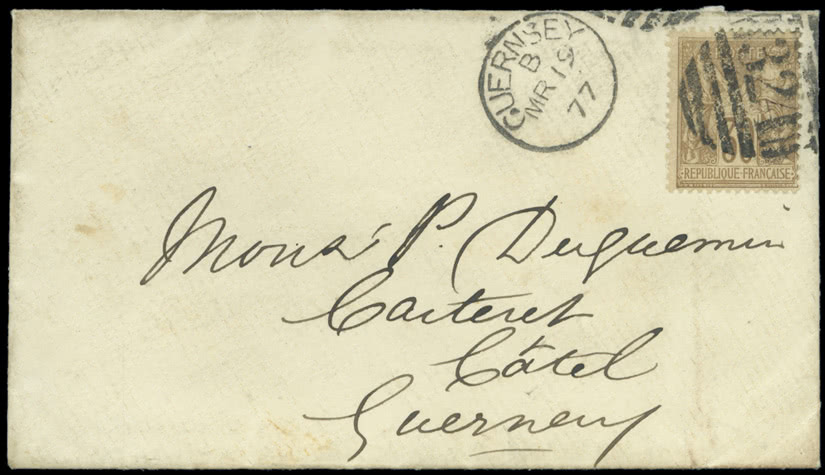 GUERNSEY
B
MR 19
77
324
30
REPUBLIQUE FRANÇAISE
Monsr P. Duquemin
Carteret
Câtel
Guernsey